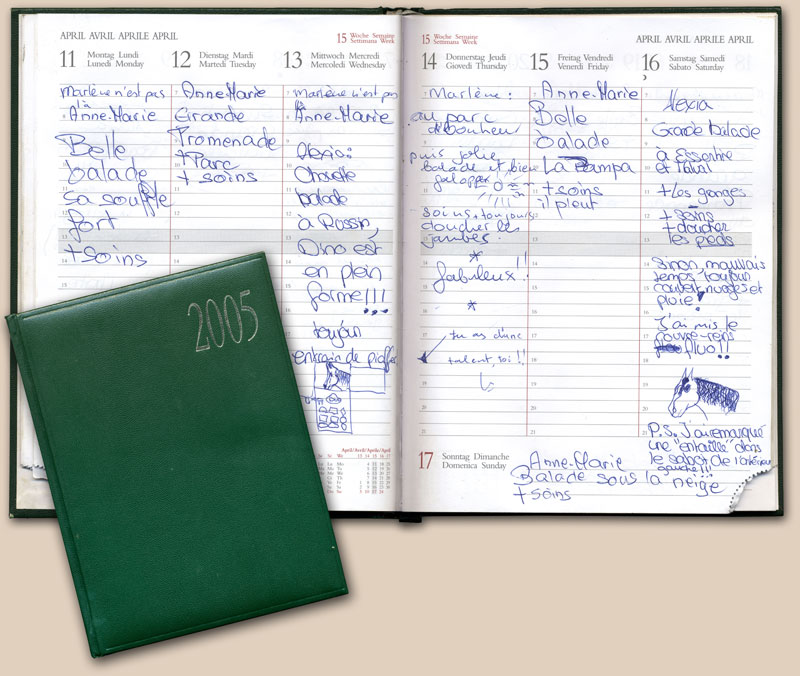 APRIL AVRIL APRILE APRIL
15 Woche Semaine
Settimana Week
11 Montag Lundi
Lunedi Monday
Marlène n'est pas
là
Anne-Marie
Belle
balade
sa souffle
fort
+ soins
12 Dienstag Mardi
Martedi Tuesday
Anne-Marie
Grande
Promenade
+ Parc
+ soins
13 Mittwoch Mercredi
Mercoledi Wednesday
Marlène n'est pas
là
Anne-Marie
Alexia:
Chouette
balade
à Rossin,
Dino est
en plein
forme!!!
toujours
entrain de piaffer
April/Avril/Aprile/April
2005
15 Woche Semaine
Settimana Week
APRIL AVRIL APRILE APRIL
14 Donnerstag Jeudi
Giovedi Thursday
Marlène:
au parc
puis jolie
balade et bien
galopper
soins + toujours
doucher les
jambes.
*
fabuleux!!
*
tu as d'une
talent, toi!!
15 Freitag Vendredi
Venerdi Friday
Anne-Marie
Belle
balade
La Pampa
+ soins
il pleut
16 Samstag Samedi
Sabato Saturday
Alexia
Grande balade
à Essertine
+ Les granges
+ soins
+ doucher
les pieds
Sinon, mauvais
temps, toujours
couvert, nuages et
pluie!
J'ai mis le
couvre-reins
fluo!!
P.S. J'ai remarqué
une "entaille" dans
le sabot de l'antérieur
gauche!!!
17 Sonntag Dimanche
Domenica Sunday
Anne-Marie
Balade sous la neige
+ soins